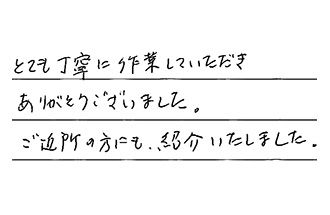 とても丁寧に作業していただき
ありがとうございました。
ご近所の方にも、紹介いたしました。